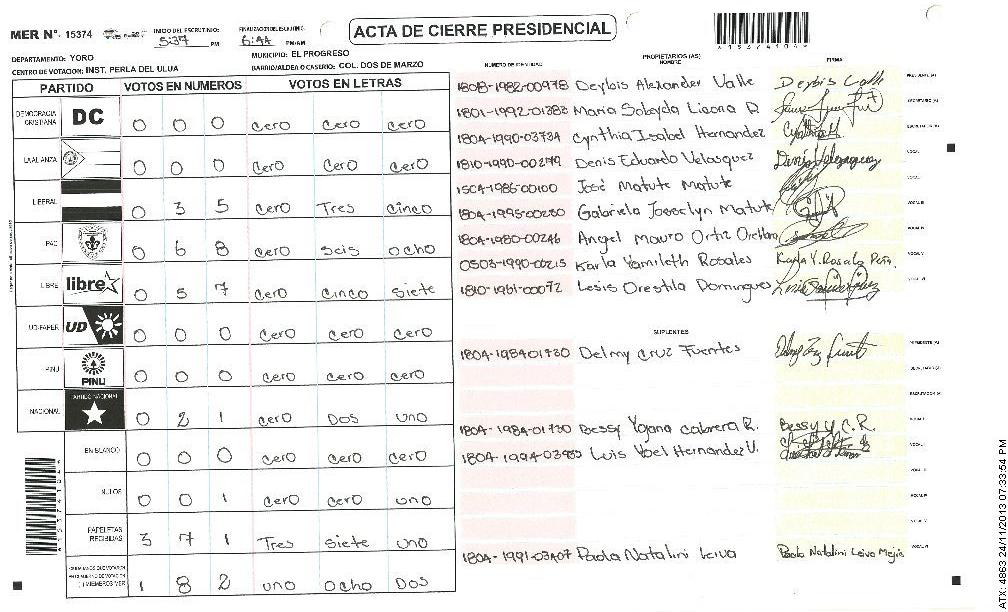 ACTA DE CIERRE PRESIDENCIAL
MER N°. 15374
INICIO DEL ESCRUTINIO: 5:37 PM
FINALIZACION DEL ESCRUTINIO: 6:44 PM/AM
DEPARTAMENTO: YORO
MUNICIPIO: EL PROGRESO
CENTRO DE VOTACION: INST. PERLA DEL ULUA
BARRIO/ALDEA O CASERIO: COL. DOS DE MARZO
PARTIDO VOTOS EN NUMEROS VOTOS EN LETRAS
DEMOCRACIA CRISTIANA DC 0 0 0 cero cero cero
LA ALIANZA 0 0 0 cero cero cero
LIBERAL 0 3 5 cero Tres cinco
PAC 0 6 8 cero seis ocho
LIBRE libre 0 5 7 cero cinco siete
UD-FAPER UD 0 0 0 cero cero cero
PINU PINU 0 0 0 cero cero cero
NACIONAL PARTIDO NACIONAL 0 2 1 cero Dos uno
EN BLANCO 0 0 0 cero cero cero
NULOS 0 0 1 cero cero uno
PAPELETAS RECIBIDAS 3 7 1 Tres siete uno
1 8 2 uno ocho Dos
NUMERO DE IDENTIDAD PROPIETARIOS (AS) NOMBRE FIRMA
1808-1982-00978 Deybis Alexander Valle Deybis Valle PRESIDENTE (A)
1801-1992-01383 Maria Sobeyda Licona R. SECRETARIO (A)
1804-1990-03734 Cynthia Isabel Hernandez Cynthia H. ESCRUTADOR (A)
1810-1990-00279 Denis Eduardo Velasquez Denis Velasquez VOCAL I
1504-1986-00100 José Matute Matute VOCAL II
1804-1995-00280 Gabriela Josselyn Matute VOCAL III
1804-1980-00246 Angel Mauro Ortiz Orellana VOCAL IV
0503-1990-00215 Karla Yamileth Rosales Karla Y. Rosales Peña. VOCAL V
1810-1961-00072 Lesis Orestila Domingues VOCAL VI
SUPLENTES
1804-1984-01730 Delmy Cruz Fuentes PRESIDENTE (A)
SECRETARIO (A)
ESCRUTADOR (A)
1804-1984-01730 Bessy Yojana Cabrera R. Bessy Y. C.R. VOCAL I
1804-1994-03985 Luis Yoel Hernandez V. VOCAL II
VOCAL III
VOCAL IV
VOCAL V
1804-1991-03407 Paola Natalini Leiva Paola Natalini Leiva Mejia VOCAL VI
ATX: 4863 24/11/2013 07:33:54 PM